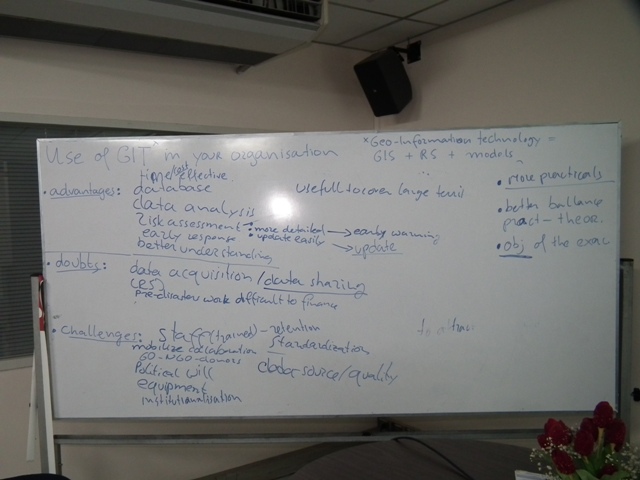 Use of GIT* in your organisation
*Geo-Information technology =
GIS + RS + models
...
• advantages: time/cost effective
database
usefull to cover large
data analysis
risk assessment • more detailed → early warning
early response • update easily → update
better understanding
• doubts: data acquisition / data sharing
(RS)
pre-disaster work difficult to finance
• challenges: staff (trained) - retention
mobilize collaboration standardization
GO-NGO-donors
Political will data-source/quality
equipment
institutionalisation
• More practicals
• better ballance
pract - theor.
• obj of the exac